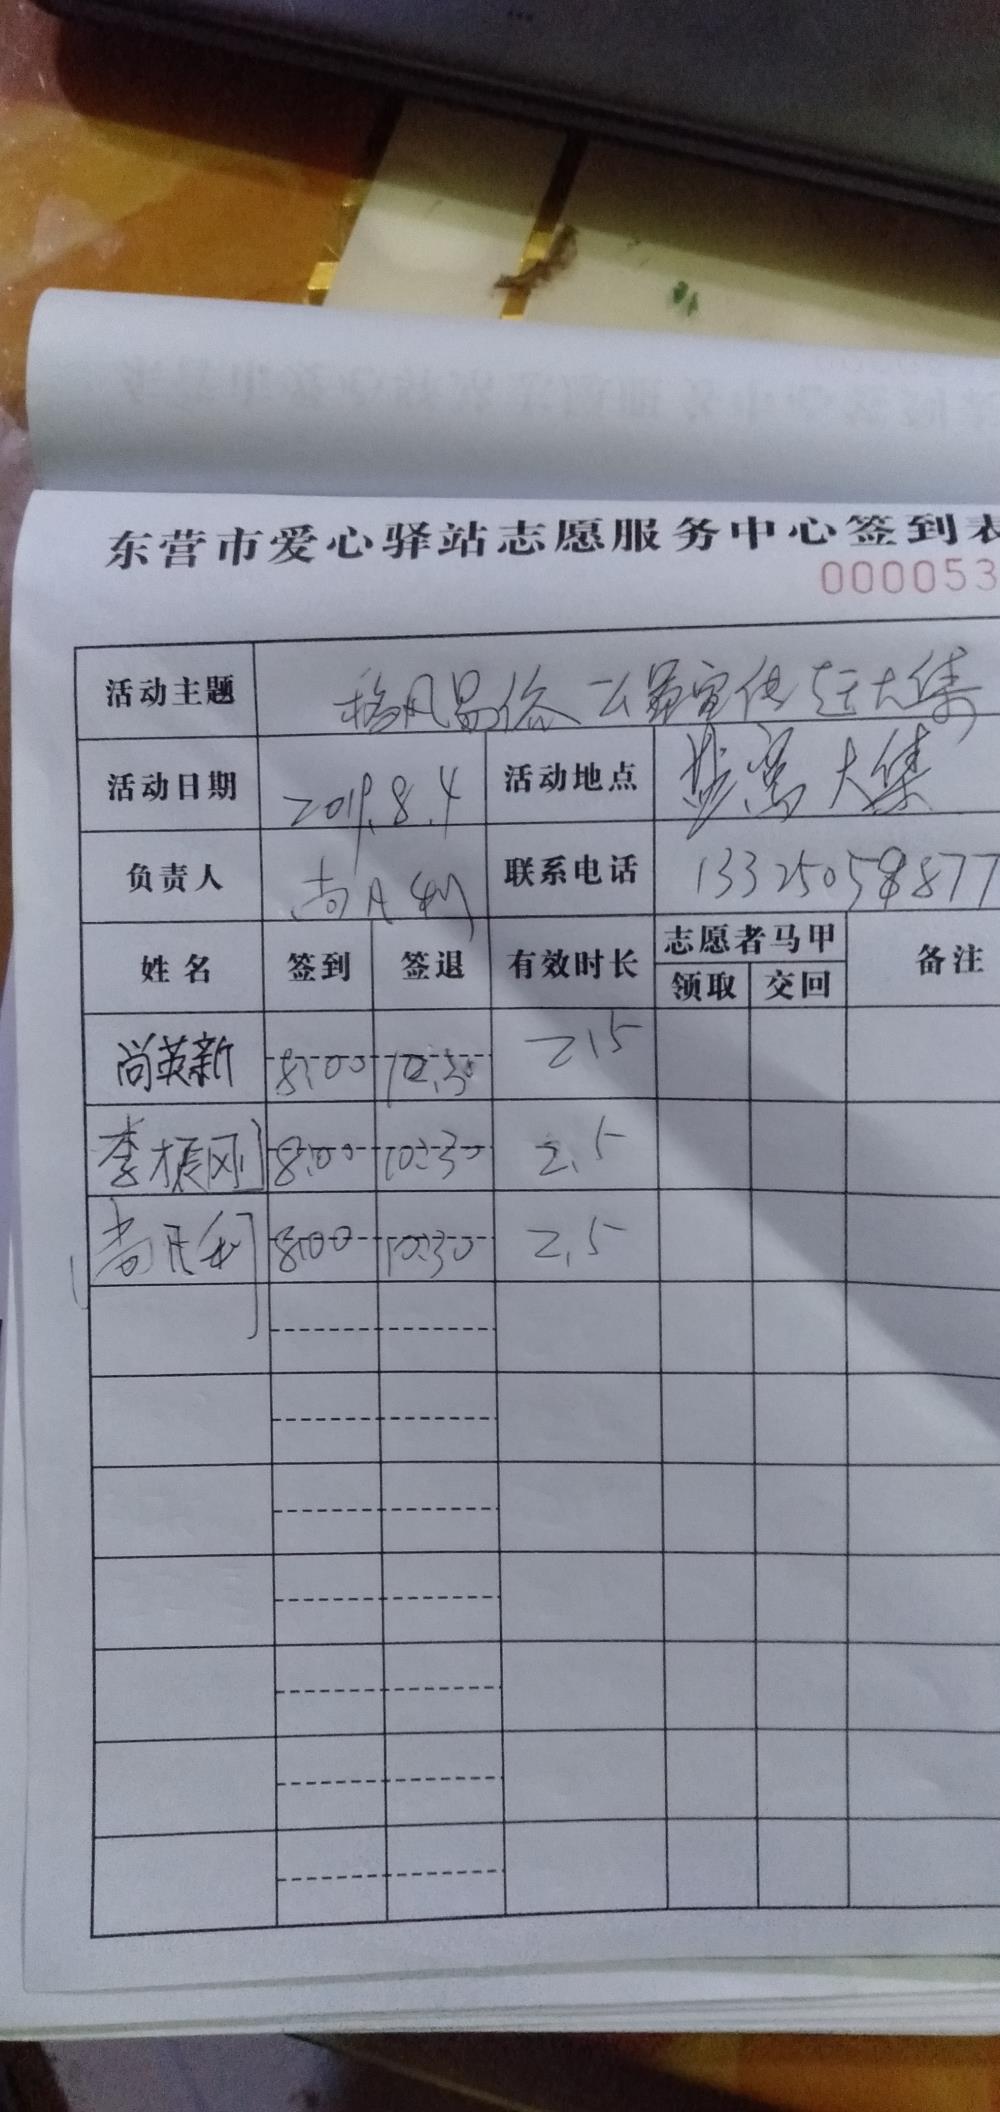 东营市爱心驿站志愿服务中心签到表
000053
活动主题 移风易俗 宣传 赶大集
活动日期 2019.8.4 活动地点 大集
负责人 联系电话
姓名 签到 签退 有效时长 志愿者马甲 备注
领取 交回
尚英新 8:00 10:30 2.5
李振刚 8:00 10:30 2.5
尚 利 8:00 10:30 2.5